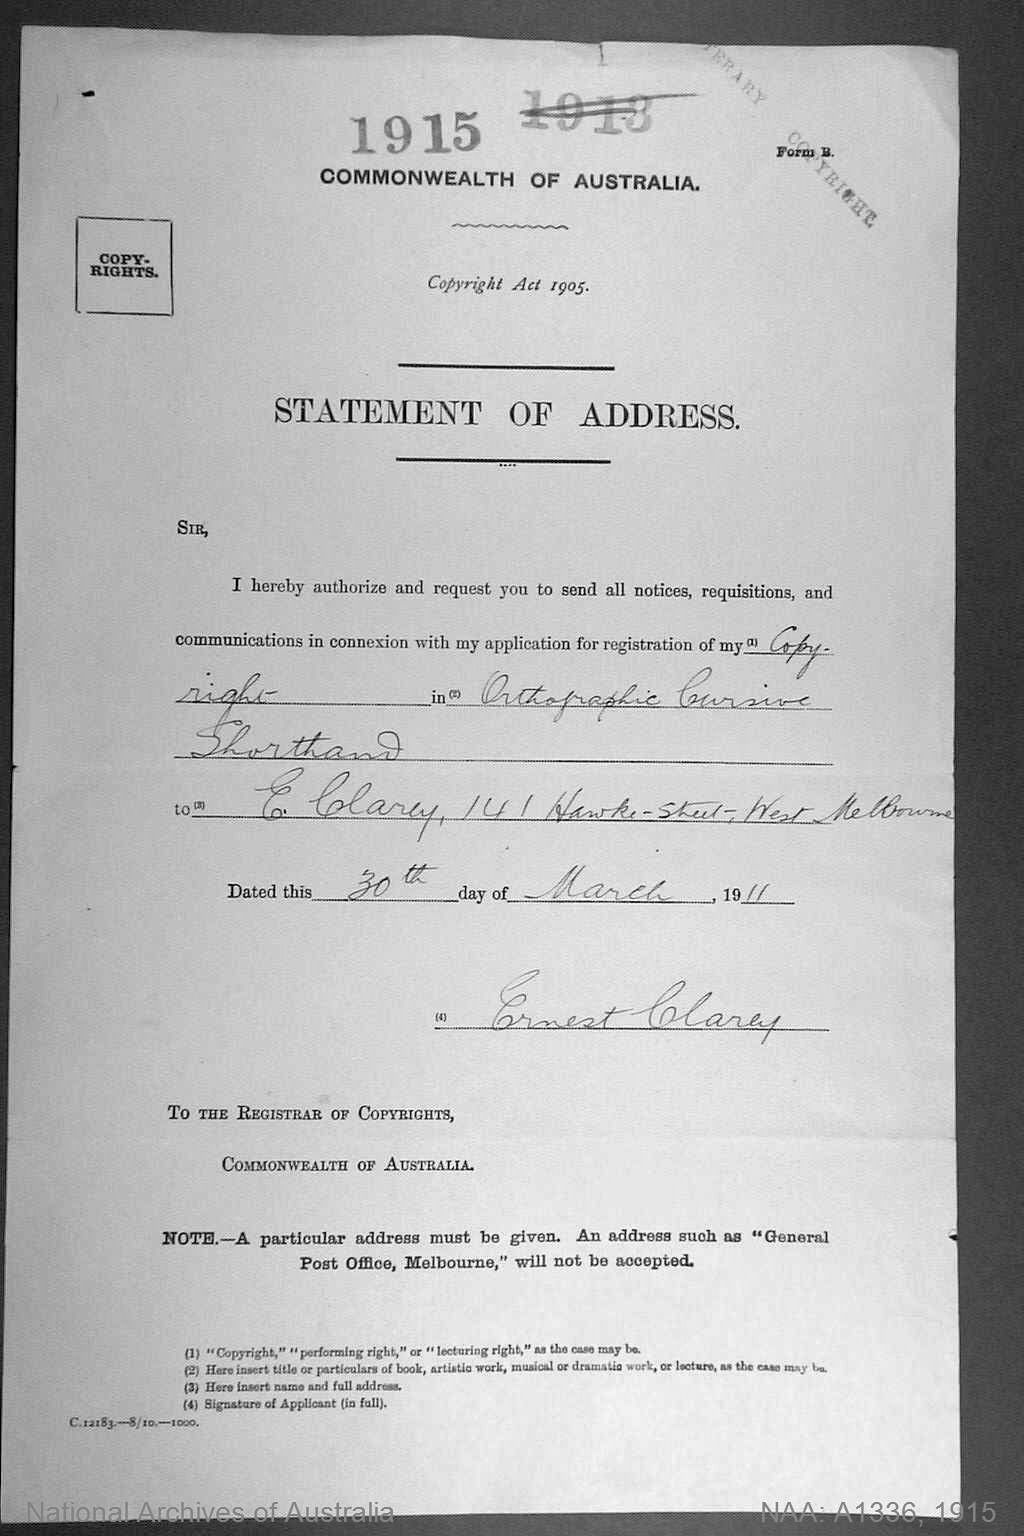 LITERARY
COPYRIGHT.
1915 1913
Form B.
COMMONWEALTH OF AUSTRALIA.
COPY-
RIGHTS.
Copyright Act 1905.
STATEMENT OF ADDRESS.
SIR,
I hereby authorize and request you to send all notices, requisitions, and
communications in connexion with my application for registration of my (1) Copy-
right in (2) Orthographic Cursive
Shorthand
to (3) E. Clarey, 141 Hawke-Street, West Melbourne
Dated this 30th day of March, 1911
(4) Ernest Clarey
TO THE REGISTRAR OF COPYRIGHTS,
COMMONWEALTH OF AUSTRALIA.
NOTE.—A particular address must be given. An address such as "General
Post Office, Melbourne," will not be accepted.
(1) "Copyright," "performing right," or "lecturing right," as the case may be.
(2) Here insert title or particulars of book, artistic work, musical or dramatic work, or lecture, as the case may be.
(3) Here insert name and full address.
(4) Signature of Applicant (in full).
C.12183.—8/10.—1000.
National Archives of Australia NAA: A1336, 1915